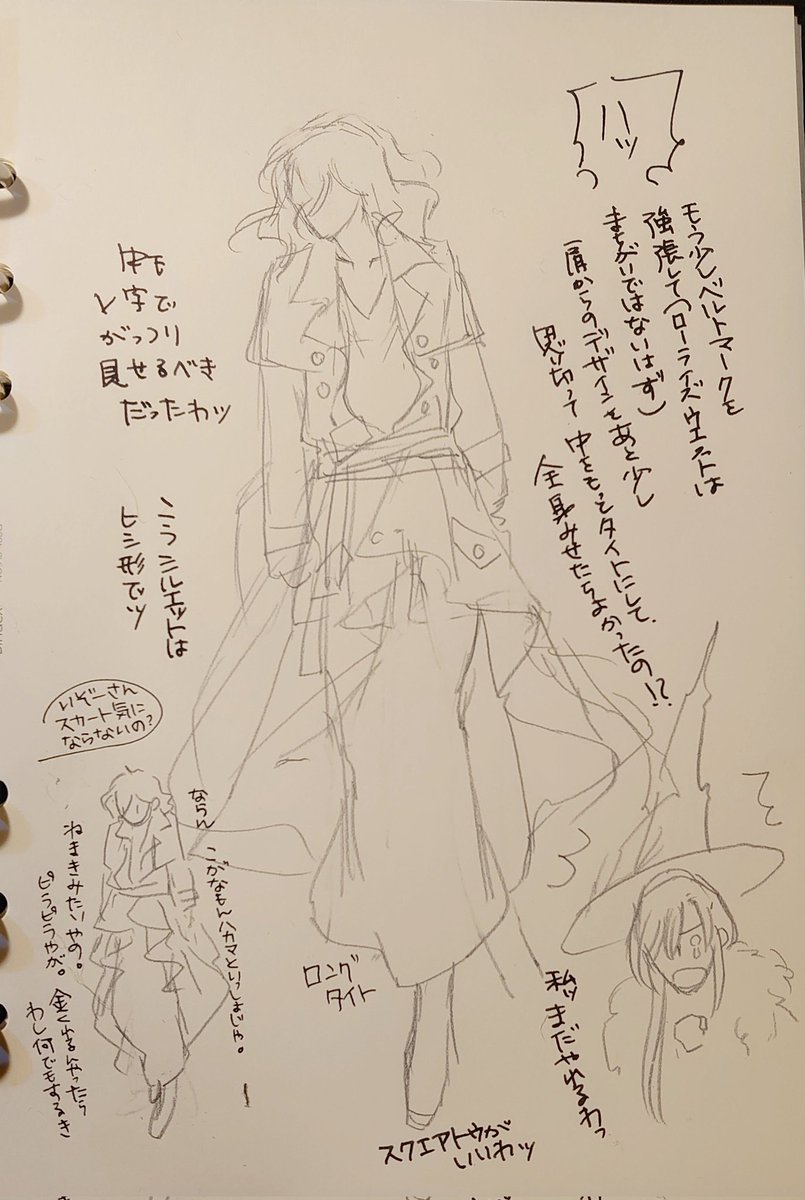 ハッ
もう少しベルトマークを
強張して(ローライズウエストは
まちがいではないはず)
肩からのデザインをあと少し
思い切って中をもっとタイトにして、
全身みせたらよかったの!?
中も
V字で
がっつり
見せるべき
だったわッ
こう シルエットは
ヒシ形でッ
いぞーさん
スカート気に
ならないの?
ならん
こがなもんハカマといっしょじゃ。
ねまきみたいやの。
ピラピラやが。
金くれるんやったら
わし何でもするき
ロング
タイト
私ッまだやれるわっ
スクエアトウが
いいわッ